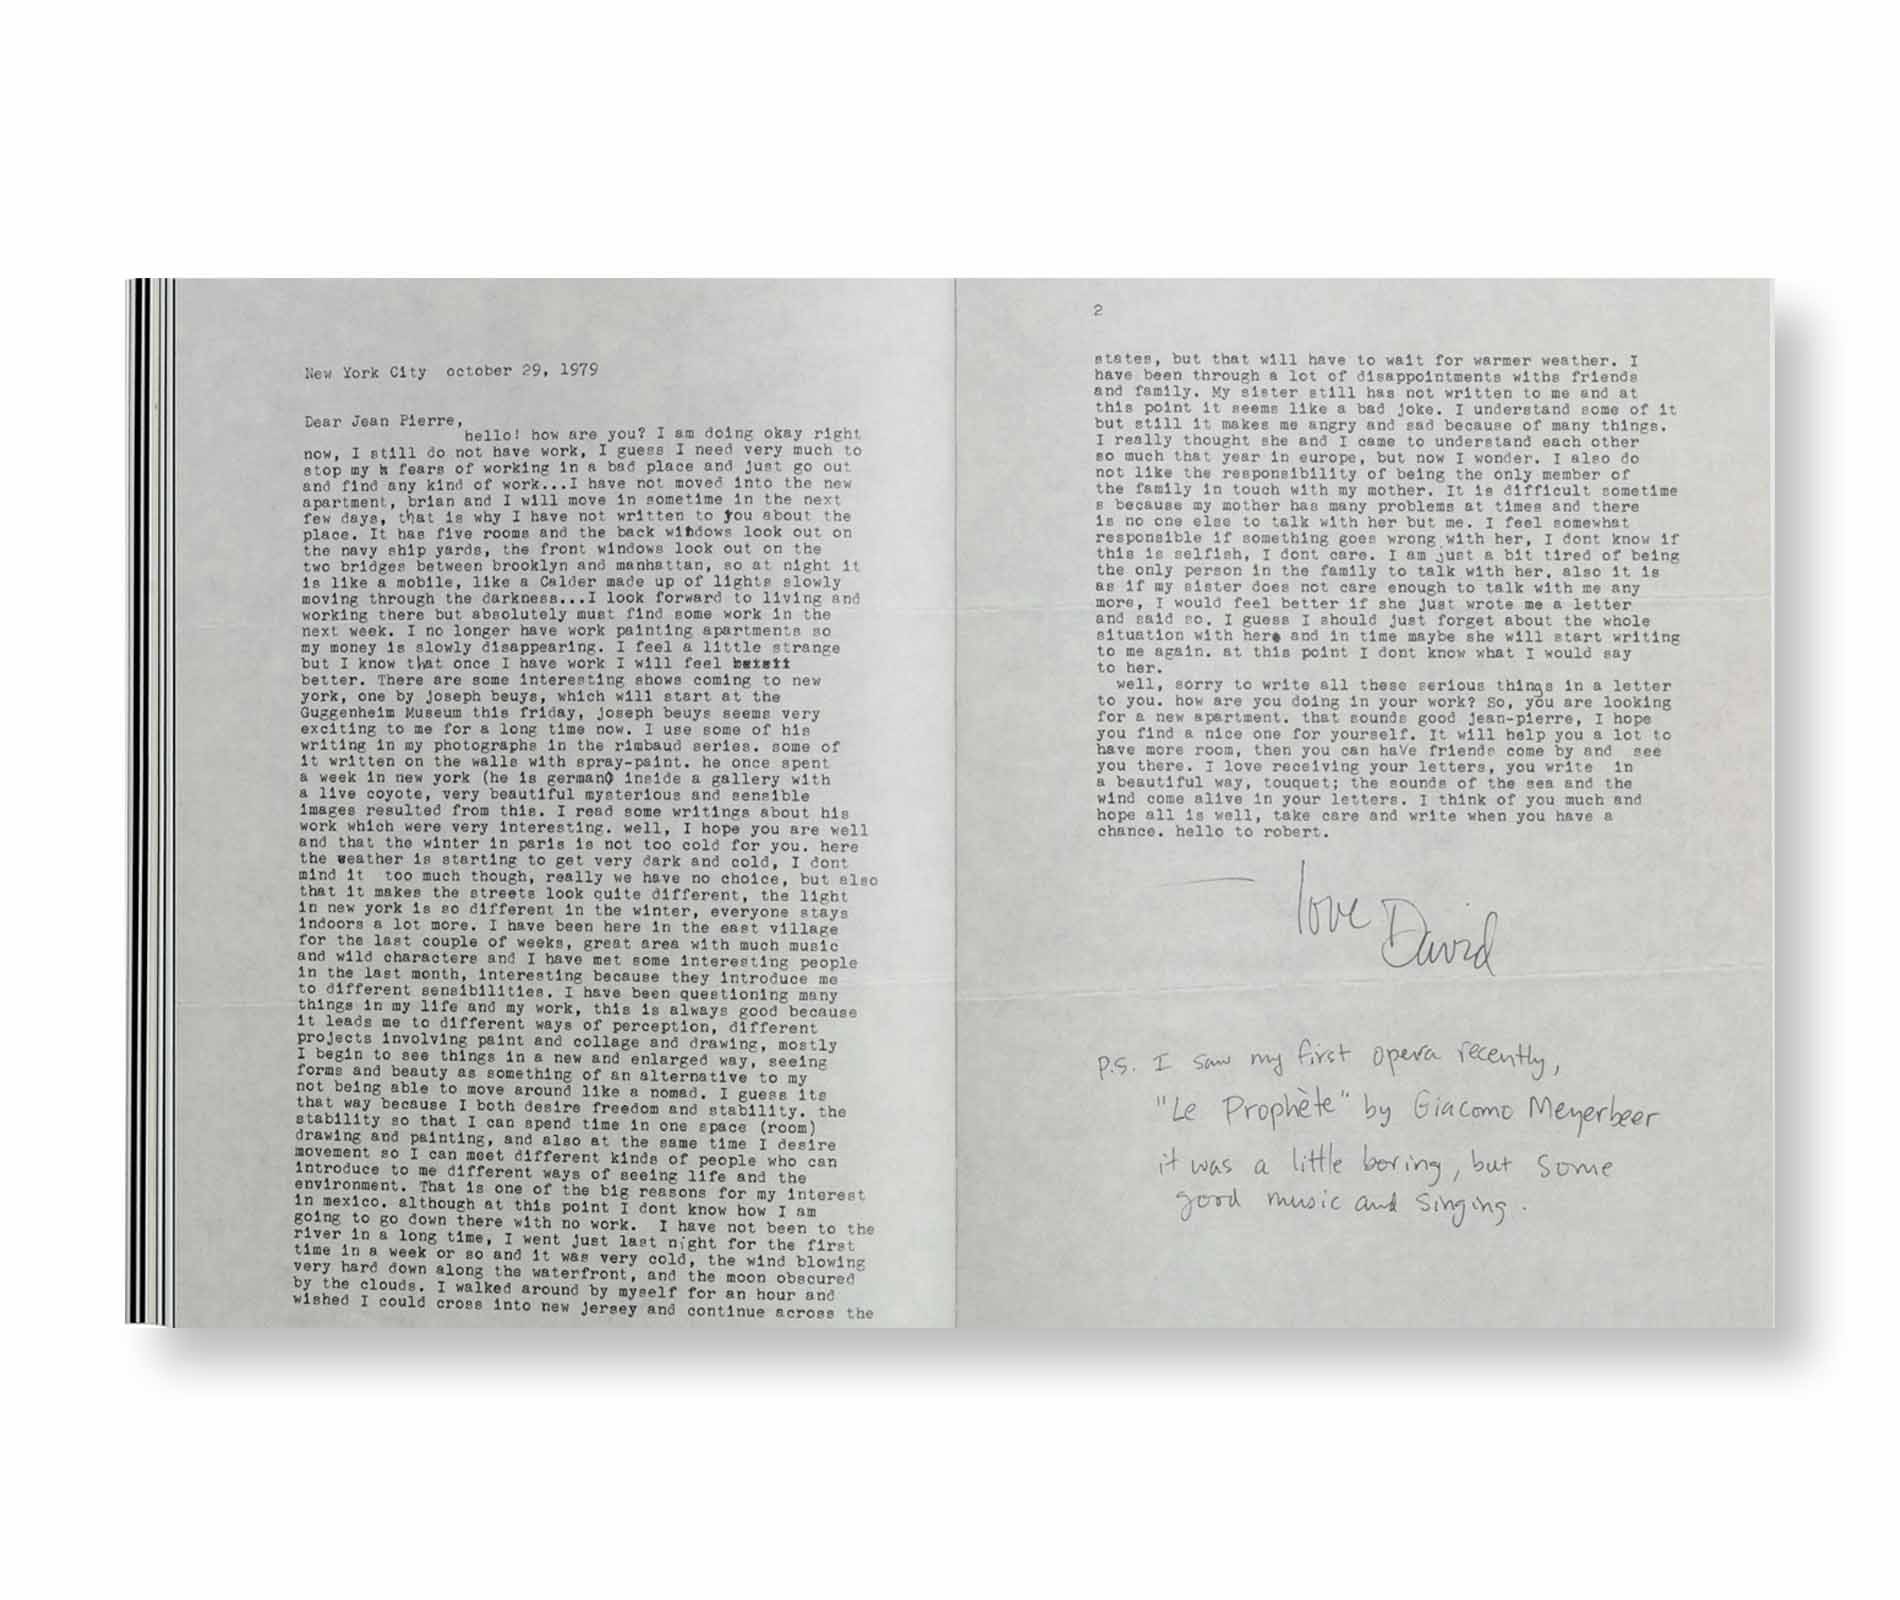 New York City  october 29, 1979
Dear Jean Pierre,
hello! how are you? I am doing okay right
now, I still do not have work, I guess I need very much to
stop my fears of working in a bad place and just go out
and find any kind of work...I have not moved into the new
apartment, brian and I will move in sometime in the next
few days, that is why I have not written to you about the
place. It has five rooms and the back windows look out on
the navy ship yards, the front windows look out on the
two bridges between brooklyn and manhattan, so at night it
is like a mobile, like a Calder made up of lights slowly
moving through the darkness...I look forward to living and
working there but absolutely must find some work in the
next week. I no longer have work painting apartments so
my money is slowly disappearing. I feel a little strange
but I know that once I have work I will feel
better. There are some interesting shows coming to new
york, one by joseph beuys, which will start at the
Guggenheim Museum this friday, joseph beuys seems very
exciting to me for a long time now. I use some of his
writing in my photographs in the rimbaud series. some of
it written on the walls with spray-paint. he once spent
a week in new york (he is german) inside a gallery with
a live coyote, very beautiful mysterious and sensible
images resulted from this. I read some writings about his
work which were very interesting. well, I hope you are well
and that the winter in paris is not too cold for you. here
the weather is starting to get very dark and cold, I dont
mind it  too much though, really we have no choice, but also
that it makes the streets look quite different, the light
in new york is so different in the winter, everyone stays
indoors a lot more. I have been here in the east village
for the last couple of weeks, great area with much music
and wild characters and I have met some interesting people
in the last month, interesting because they introduce me
to different sensibilities. I have been questioning many
things in my life and my work, this is always good because
it leads me to different ways of perception, different
projects involving paint and collage and drawing, mostly
I begin to see things in a new and enlarged way, seeing
forms and beauty as something of an alternative to my
not being able to move around like a nomad. I guess its
that way because I both desire freedom and stability. the
stability so that I can spend time in one space (room)
drawing and painting, and also at the same time I desire
movement so I can meet different kinds of people who can
introduce to me different ways of seeing life and the
environment. That is one of the big reasons for my interest
in mexico. although at this point I dont know how I am
going to go down there with no work.  I have not been to the
river in a long time, I went just last night for the first
time in a week or so and it was very cold, the wind blowing
very hard down along the waterfront, and the moon obscured
by the clouds. I walked around by myself for an hour and
wished I could cross into new jersey and continue across the
2
states, but that will have to wait for warmer weather. I
have been through a lot of disappointments withs friends
and family. My sister still has not written to me and at
this point it seems like a bad joke. I understand some of it
but still it makes me angry and sad because of many things.
I really thought she and I came to understand each other
so much that year in europe, but now I wonder. I also do
not like the responsibility of being the only member of
the family in touch with my mother. It is difficult sometime
s because my mother has many problems at times and there
is no one else to talk with her but me. I feel somewhat
responsible if something goes wrong with her, I dont know if
this is selfish, I dont care. I am just a bit tired of being
the only person in the family to talk with her. also it is
as if my sister does not care enough to talk with me any
more, I would feel better if she just wrote me a letter
and said so. I guess I should just forget about the whole
situation with her and in time maybe she will start writing
to me again. at this point I dont know what I would say
to her.
well, sorry to write all these serious things in a letter
to you. how are you doing in your work? So, you are looking
for a new apartment. that sounds good jean-pierre, I hope
you find a nice one for yourself. It will help you a lot to
have more room, then you can have friends come by and  see
you there. I love receiving your letters, you write  in
a beautiful way, touquet; the sounds of the sea and the
wind come alive in your letters. I think of you much and
hope all is well, take care and write when you have a
chance. hello to robert.
— love David
p.s. I saw my first opera recently,
"Le Prophète" by Giacomo Meyerbeer
it was a little boring, but some
good music and singing.